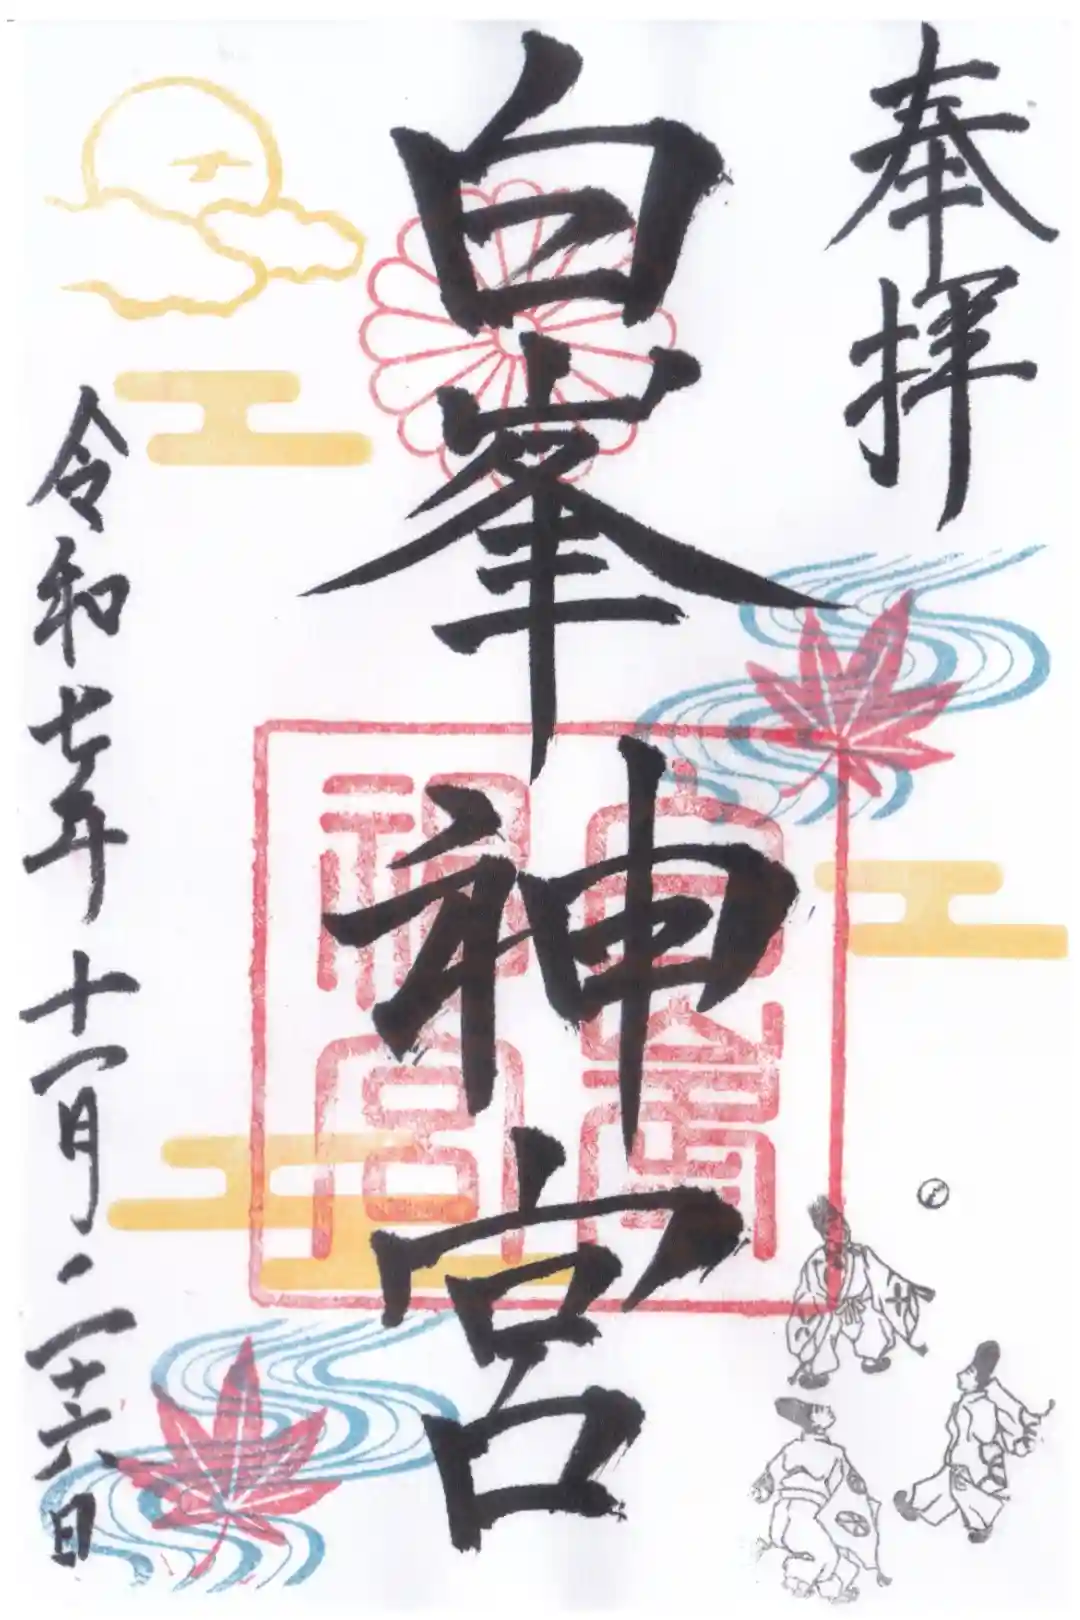 奉拝
白峯神宮
令和七年十一月二十六日